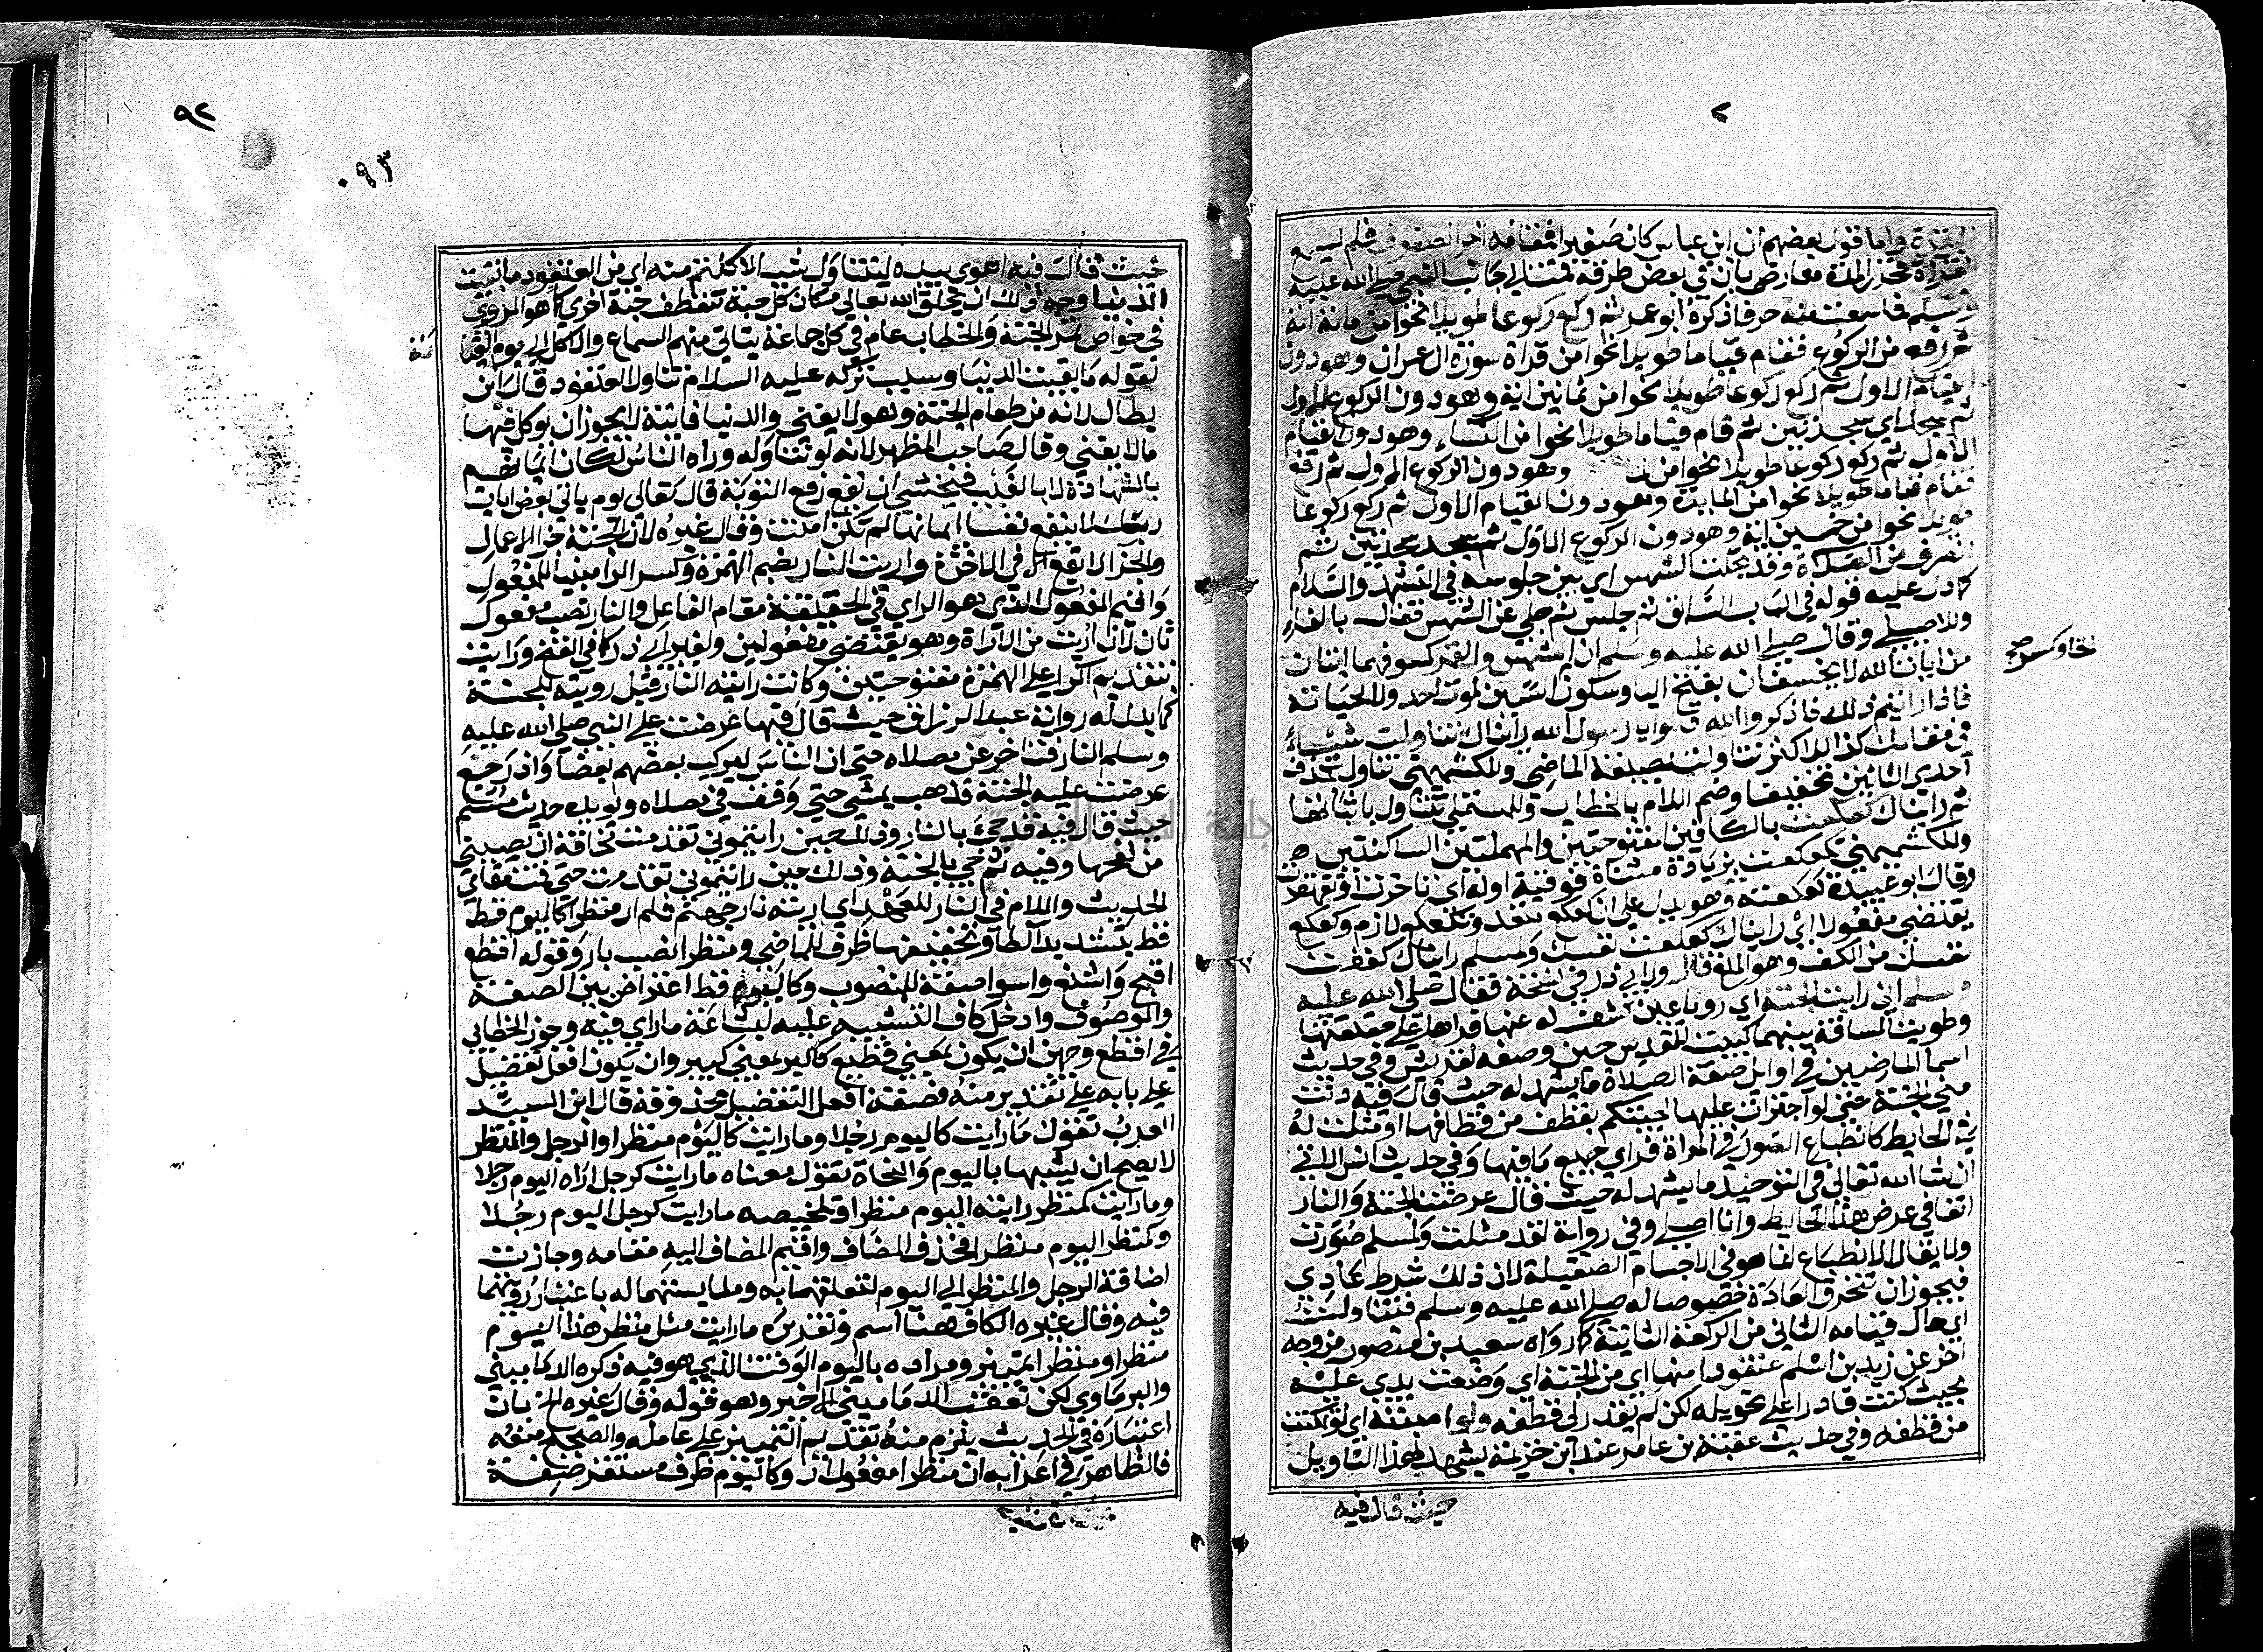 البقرة واما قول بعضهم ان ابن عباس كان صغيرا فمقامه اخر الصفوف فلم يسمع
القراة فحزر المدة معارض بان في بعض طرقه قمت الي جانب النبي صلي الله عليه
وسلم فما سمعت منه حرفا ذكره ابو عمر ثم ركع ركوعا طويلا نحوا من مائة اية
ثم رفع من الركوع فقام قياما طويلا نحوا من قراة سورة ال عمران وهو دون
القيام الاول ثم ركع ركوعا طويلا نحوا من ثمانين اية وهو دون الركوع الاول
ثم سجد اي سجدتين ثم قام قياما طويلا نحوا من النساء وهو دون القيام
الاول ثم ركع ركوعا طويلا نحوا من وهو دون الركوع الاول ثم رفع
فقام قياما طويلا نحوا من المايدة وهو دون القيام الاول ثم ركع ركوعا
طويلا نحوا من خمسين اية وهو دون الركوع الاول ثم سجد سجدتين ثم
انصرف من الصلاة وقد تجلت الشمس اي بين جلوسه في التشهد والسلام
كما دل عليه قوله في الباب السابق ثم جلس ثم جلي عن الشمس فقال بالفاء
وللاصيلي وقال صلي الله عليه وسلم ان الشمس والقمر كسوفهما ايتان
من ايات الله لا يخسفان بفتح اليا وسكون السين لموت احد ولا لحياته
فاذا رايتم ذلك فاذكروا الله قالوا يا رسول الله رايناك تناولت شيئا
في مقامك كذا للاكثر تناولت بصيغة الماضي وللكشميهني تناول بحذف
احدي التائين تخفيفا وضم اللام بالخطاب وللمستملي تتناول باثباتها
ثم رايناك كعكعت بالكافين مفتوحتين والمهملتين الساكنتين
وللكشميهني تكعكعت بزيادة مثناة فوقية اوله اي تاخرت او تقهقرت
وقال ابو عبيدة كعكعته وهو يدل علي ان كعكع متعد وتكعكع لازم وكعكع
يقتضي مفعولا اي رايناك كعكعت نفسك ولمسلم رايناك كففت
نفسك من الكف وهو المنع فقال ولابي ذر في نسخة فقال صلي الله عليه
وسلم اني رايت الجنة اي رويا عين كشف له عنها فراها علي حقيقتها
وطويت المسافة بينهما كبيت المقدس حين وصفه لقريش وفي حديث
اسما الماضي في اوايل صفة الصلاة ما يشهد له حيث قال فيه دنت
مني الجنة حتي لو اجترات عليها لجيتكم بقطف من قطافها او مثلت له
في الحايط كانطباع الصور في المراة فراي جميع ما فيها وفي حديث انس الاتي
ان شا الله تعالي في التوحيد ما يشهد له حيث قال عرضت الجنة والنار
انفا في عرض هذا الحايط وانا اصلي وفي رواية لقد مثلت ولمسلم صورت
ولا يقال الانطباع انما هو في الاجسام الصقيلة لان ذلك شرط عادي
فيجوز ان تنخرق العادة خصوصا له صلي الله عليه وسلم فتناولت
اي حال قيامه الثاني من الركعة الثانية كما رواه سعيد بن منصور من وجه
اخر عن زيد بن اسلم عنقودا منها اي من الجنة اي وضعت يدي عليه
بحيث كنت قادرا علي تحويله لكن لم يقدر لي قطفه ولو اصبته اي لو تمكنت
من قطفه وفي حديث عقبة بن عامر عند ابن خزيمة يشهد لهذا التاويل
حيث قال فيه
٩٢
٠٩٣
حيث قال فيه اهوي بيده ليتناول شيا لاكلتم منه اي من العنقود ما بقيت
الدنيا وجه ذلك ان يخلق الله تعالي مكان كل حبة تقتطف حبة اخري كما هو المروي
في خواص ثمر الجنة والخطاب عام في كل جماعة يتاتي منهم السماع والاكل الي يوم القيا
مة
لقوله ما بقيت الدنيا وسبب تركه عليه السلام تناول العنقود قال ابن
بطال لانه من طعام الجنة وهو لا يفني والدنيا فانية لا يجوز ان يوكل فيها
ما لا يفني وقال صاحب المظهر لانه لو تناوله وراه الناس لكان ايمانهم
بالشهادة لا بالغيب فيخشي ان يقع رفع التوبة قال تعالي يوم ياتي بعض ايات
ربك لا ينفع نفسا ايمانها لم تكن امنت وقال غيره لان الجنة جزا الاعمال
والجزا لا يقع الا في الاخرة واريت النار بضم الهمزة وكسر الرا مبنيا للمفعول
واقيم المفعول الذي هو الراي في الحقيقة مقام الفاعل والنار نصب مفعول
ثان لان اريت من الاراة وهو يقتضي مفعولين ولغير ابي ذر كما في الفتح ورايت
بتقديم الرا علي الهمزة مفتوحتين وكانت رايته النار قبل رويته للجنة
كما يدل له رواية عبد الرزاق حيث قال فيها عرضت علي النبي صلي الله عليه
وسلم النار فتاخر عن مصلاه حتي ان الناس ليركب بعضهم بعضا واذ رجع
عرضت عليه الجنة فذهب يمشي حتي وقف في مصلاه ويويده حديث مسلم
حيث قال فيه قد جيء بالنار وذلك حين رايتموني تاخرت مخافة ان يصيبني
من لفحها وفيه ثم جي بالجنة وذلك حين رايتموني تقدمت حتي قمت مقامي
الحديث واللام في النار للعهد اي اريته نار جهنم فلم ار منظرا كاليوم قط
قط بتشديد الطا وتخفيفها ظرف للماضي ومنظرا نصب بار وقوله افظع
اقبح واشنع واسوا صفة للمنصوب وكاليوم قط اعتراض بين الصفة
والموصوف وادخل كاف التشبيه عليه لبشاعة ما راي فيه وجوز الخطابي
في افظع وجهين ان يكون بمعني فظيع كاكبر بمعني كبير وان يكون افعل تفضيل
علي بابه علي تقدير منه فصفة افعل التفضيل محذوفة قال ابن السيد
العرب تقول ما رايت كاليوم رجلا وما رايت كاليوم منظرا والرجل والمنظر
لا يصح ان يشبها باليوم والنحاة تقول معناه ما رايت كرجل اراه اليوم رجلا
وما رايت كمنظر رايته اليوم منظرا وتلخيصه ما رايت كرجل اليوم رجلا
وكمنظر اليوم منظرا فحذف المضاف واقيم المضاف اليه مقامه وجازت
اضافة الرجل والمنظر الي اليوم لتعلقهما به وملابستهما له باعتبار رويتهما
فيه وقال غيره الكاف هنا اسم وتقديره ما رايت مثل منظر هذا اليوم
منظرا ومنظرا تمييز ومراده باليوم الوقت الذي هو فيه ذكره الدماميني
والبرماوي لكن تعقب الدماميني الاخير وهو قوله وقال غيره الخ بان
اعتباره في الحديث يلزم منه تقديم التمييز علي عامله والصحيح منعه
فالظاهر في اعرابه ان منظرا مفعول ار وكاليوم ظرف مستقر صفة